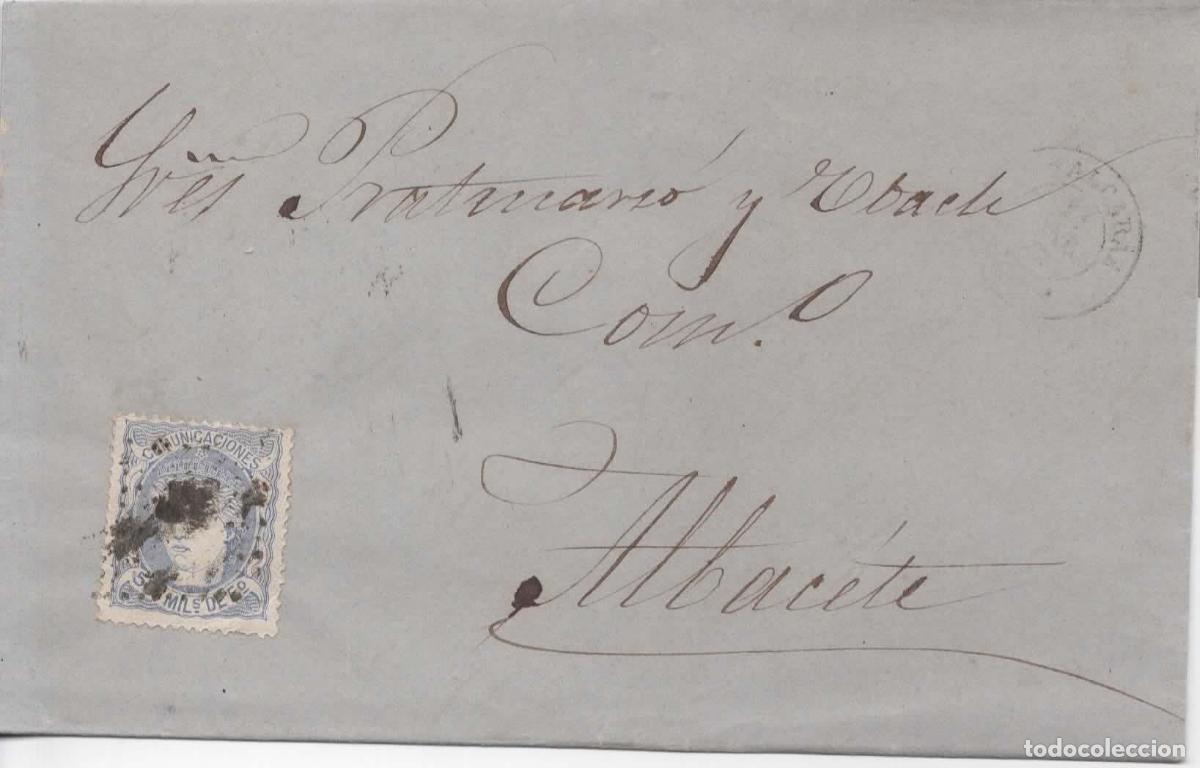 Sres Pratmarsó y
Com.
Albacéte
COMUNICACIONES
50 MILS DE Eo
todocoleccion